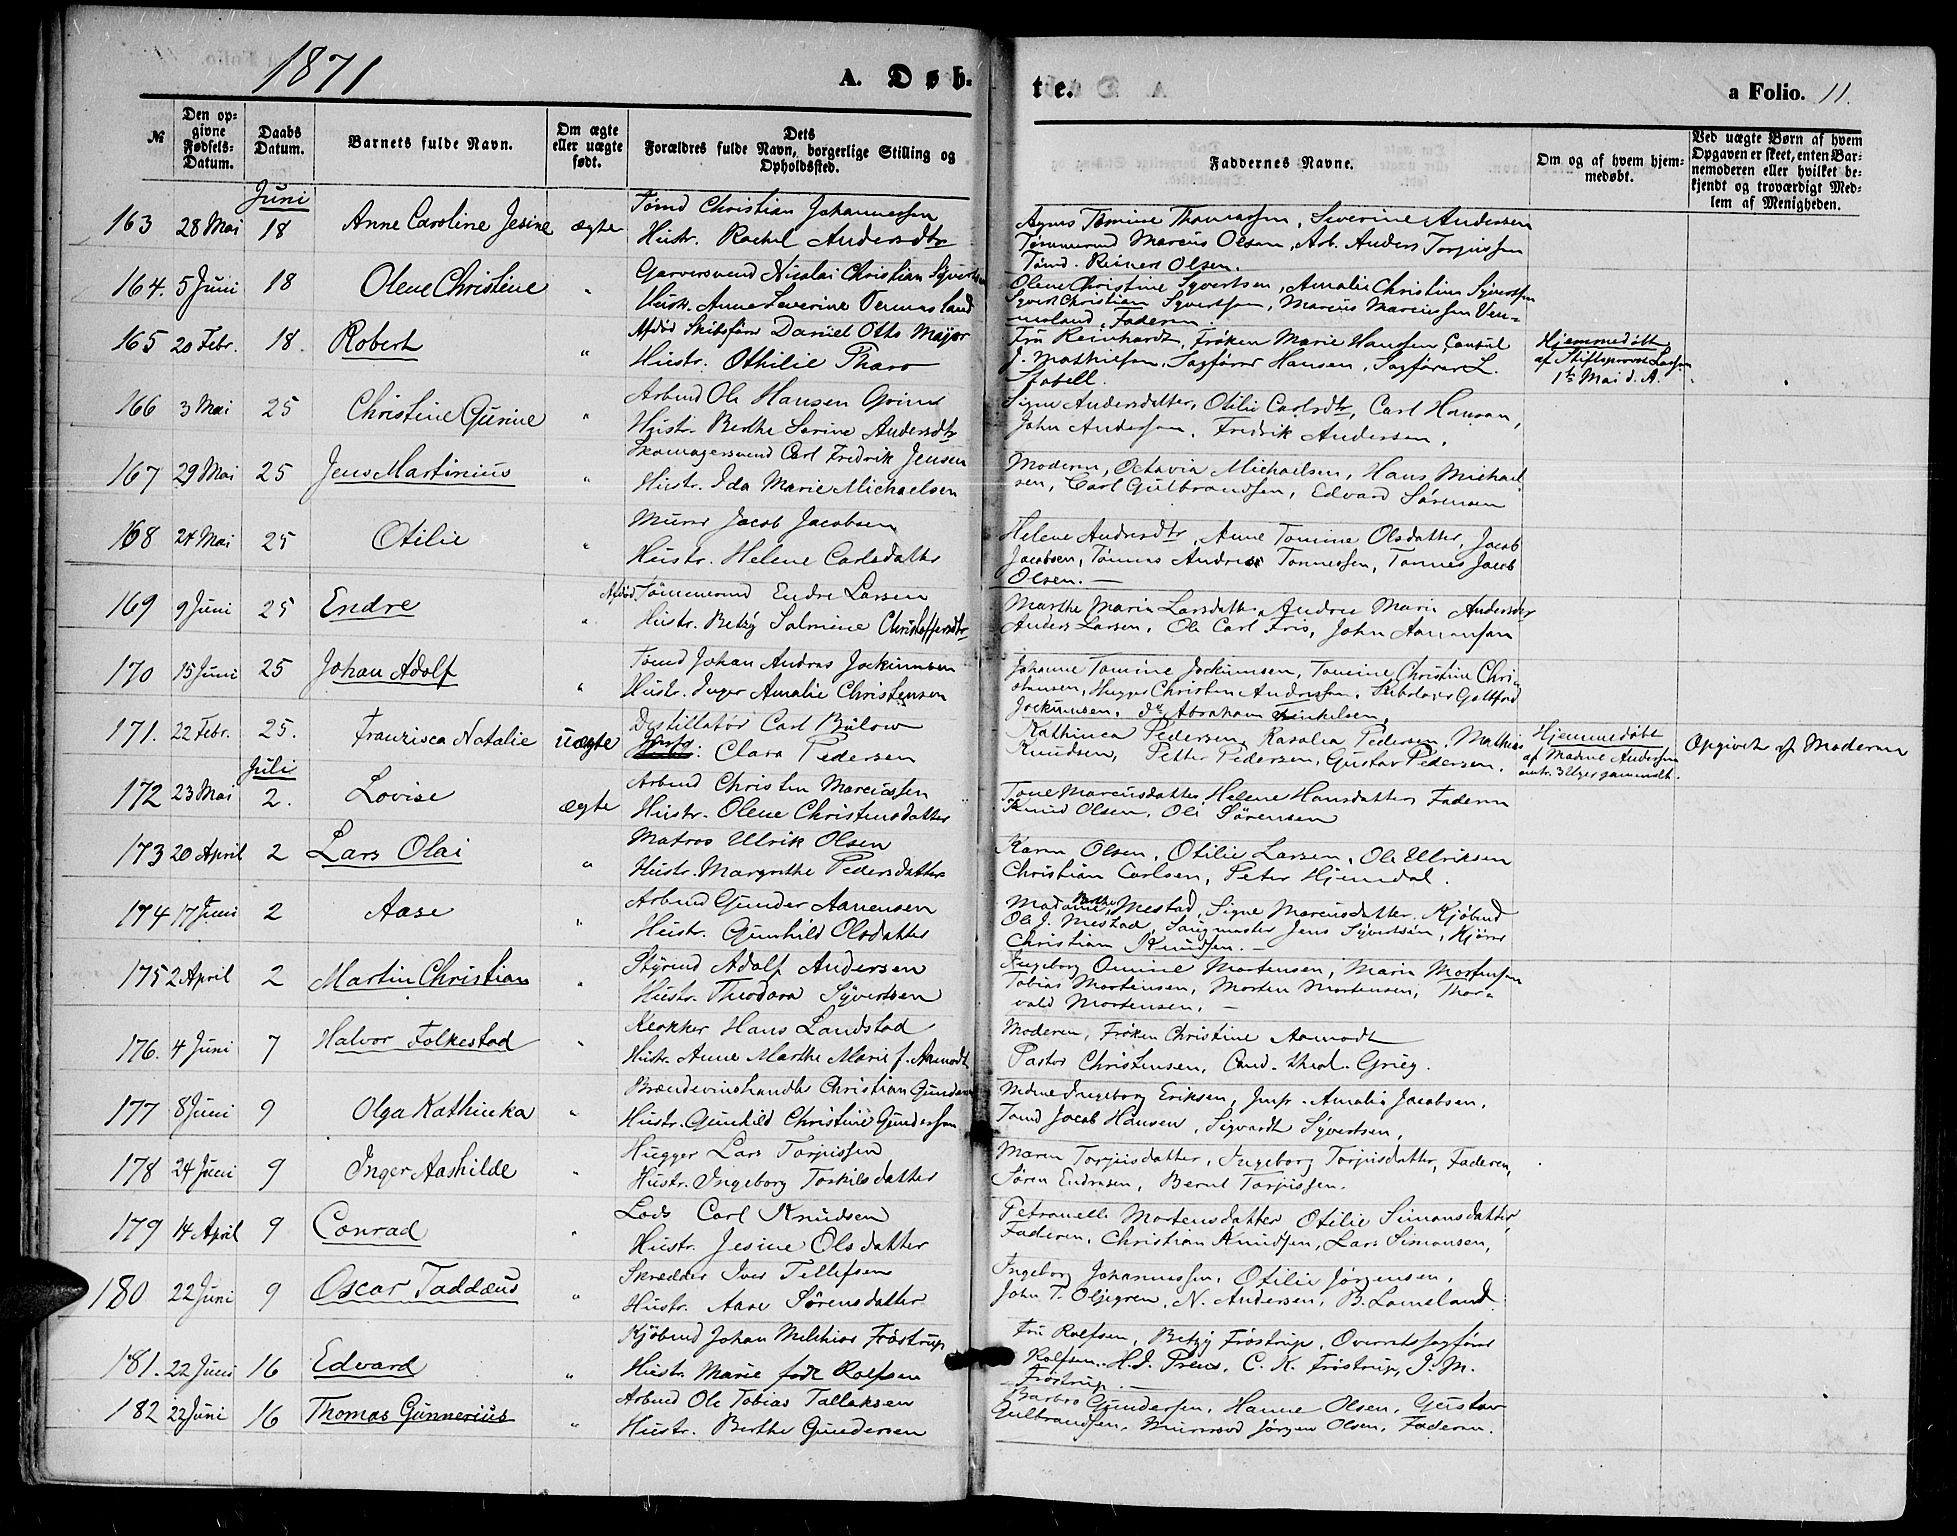 1871
A. Døb-
te.
a Folio. 11.
№
Den op-
givne
Fødsels-
Datum.
Daabs
Datum.
Barnets fulde Navn.
Om ægte
eller uægte
født.
Dets
Forældres fulde Navn, borgerlige Stilling og
Opholdssted.
Faddernes Navne.
Om og af hvem hjem-
medøbt.
Ved uægte Børn af hvem
Opgaven er skeet, enten Bar-
nemoderen eller hvilket be-
kjendt og troværdigt Med-
lem af Menigheden.
Juni
163 28 Mai 18 Anne Caroline Jesine ægte Tømd Christian Johannessen
Hustr. Rachel Andersdtr
Agnes Tomine Thomassen, Severine Andersen
Tømmermd Marcus Olsen, Arb. Anders Torjussen
Tømd. Reinert Olsen.
164. 5 Juni 18 Olene Christine " Garversvend Nicolai Christian Syvertsen
Hustr. Anne Severine Vennesland
Olene Christine Syvertsen, Amalie Christine Syvertsen
Syvert Christian Syvertsen, Marcus Marcussen Ven-
nesland, Faderen.
165 20 Febr. 18. Robert " Afdød Skibsfører Daniel Otto Major
Hustr. Othilie Tharo
Fru Reinhardt, Frøken Marie Hanssen, Consul
J. Mathiesen, Sagfører Hansen, Sagfører L.
Stabell.
Hjemmedøbt
af Stiftsprovst Lassen
1ste Mai d. A.
166 3 Mai 25 Christine Gurine " Arbmd Ole Hansen Grim
Hustr. Berthe Sarine Andersdtr
Signe Andersdatter, Otilie Carlsdtr, Carl Hansen,
John Andersen, Fredrik Andersen.
167 29 Mai 25 Jens Martinius " Skomagersvend Carl Fredrik Jensen
Hustr. Ida Marie Michaelsen
Moderen, Octavia Michaelsen, Hans Michael-
sen, Carl Gulbrandsen, Edvard Sørensen
168 24 Mai 25 Otilie " Murer Jacob Jacobsen
Hustr. Helene Carlsdatter
Helene Andersdtr, Anne Tomine Olsdatter, Jacob
Jacobsen, Tønnes Andreas Tønnessen, Tønnes Jacob
Olsen. —
169 9 Juni 25 Endre " Afdød Tømmermd Endre Larsen
Hustr. Betzy Salmine Christoffersdtr
Marthe Marie Larsdatter, Andrea Marie Andersdtr
Anders Larsen, Ole Carl Friis, John Aanonsen
170 15 Juni 25 Johan Adolf " Tømd Johan Andreas Jockumsen
Hustr. Inger Amalie Christensen
Johanne Tomine Jockumsen, Tomine Christine Chri-
stensen, Hugger Christen Andreassen, Gottfred
Jockumsen, do Abraham Terkelsen.
171. 22 Febr. 25. Franzisca Natalie uægte Destillatør Carl Bülow
Clara Pedersen
Kathinca Pedersen, Rosalia Pedersen, Mathias
Knudsen, Petter Pedersen, Gustav Pedersen.
Hjemmedøbt
af Madme Andersen
omtr. 3 Uger gammelt.
Opgivet af Moderen
Juli
172 23 Mai 2. Lovise ægte Arbmd Christen Marcussen
Hustr. Olene Christensdatter
Tone Marcusdatter, Helene Hansdatter, Faderen
Knud Olsen, Ole Sørensen
173 20 April 2 Lars Olai " Matros Ulrik Olsen
Hustr. Margrethe Pedersdatter
Karen Olsen, Otilie Larsen, Ole Ulriksen
Christian Carlsen, Peter Hjemdal.
174 17 Juni 2 Aase " Arbmd Gunder Aanensen
Hustr. Gunhild Olsdatter
Madame Mestad, Signe Marcusdatter, Kjøbmd
Ole J. Mestad, Jens Syvertsen, Kjører
Christian Knudsen. —
175 2 April 2 Martin Christian " Styrmd Adolf Andersen
Hustr. Theodora Syvertsen
Ingeborg Omine Mortensen, Maria Mortensen
Tobias Mortensen, Morten Mortensen, Thor-
vald Mortensen. —
176. 4 Juni 7 Halvor Folkestad " Klokker Hans Landstad
Hustr. Anne Marthe Marie f. Aamodt
Moderen, Frøken Christine Aamodt
Pastor Christensen, Cand. theol. Grieg.
177 8 Juni 9 Olga Kathinka " Brændevinshandler Christian Gundersen
Hustr. Gunhild Christine Gundersen
Madme Ingeborg Eriksen, Jmfr. Amalie Jacobsen,
Tømd Jacob Hansen, Sigvardt Syvertsen,
178 24 Juni 9 Inger Aashilde " Hugger Lars Torjussen
Hustr. Ingeborg Toskilsdatter
Maren Torjusdatter, Ingeborg Torjusdatter, Faderen,
Søren Endresen, Bernt Torjussen.
179 14 April 9 Conrad " Lods Carl Knudsen
Hustr. Jesine Olsdatter
Petronelle Mortensdatter Otilie Simonsdatter,
Faderen, Christian Knudsen, Lars Simonsen,
180 22 Juni 9 Oscar Taddæus " Skrædder Iver Tellefsen
Hustr. Aase Sørensdatter
Ingeborg Johannessen, Otilie Jørgensen,
John T. Oljegren, N. Andersen, B. Lomeland.
181. 22 Juni 16 Edvard " Kjøbmd Johan Melchior Frøstrup
Hustr. Marie født Rolfsen
Fru Rolfsen, Betzy Frøstrup, Overretssagfører
Rolfsen, H.J. Preus, C. K. Frøstrup, J. M.
Frøstrup. —
182 22 Juni 16 Thomas Gunnerius " Arbmd Ole Tobias Tallaksen
Hustr. Berthe Gundersen
Barbro Gundersen, Hanne Olsen, Gustav
Gulbrandsen, Murersvd Jørgen Olsen, Faderen.